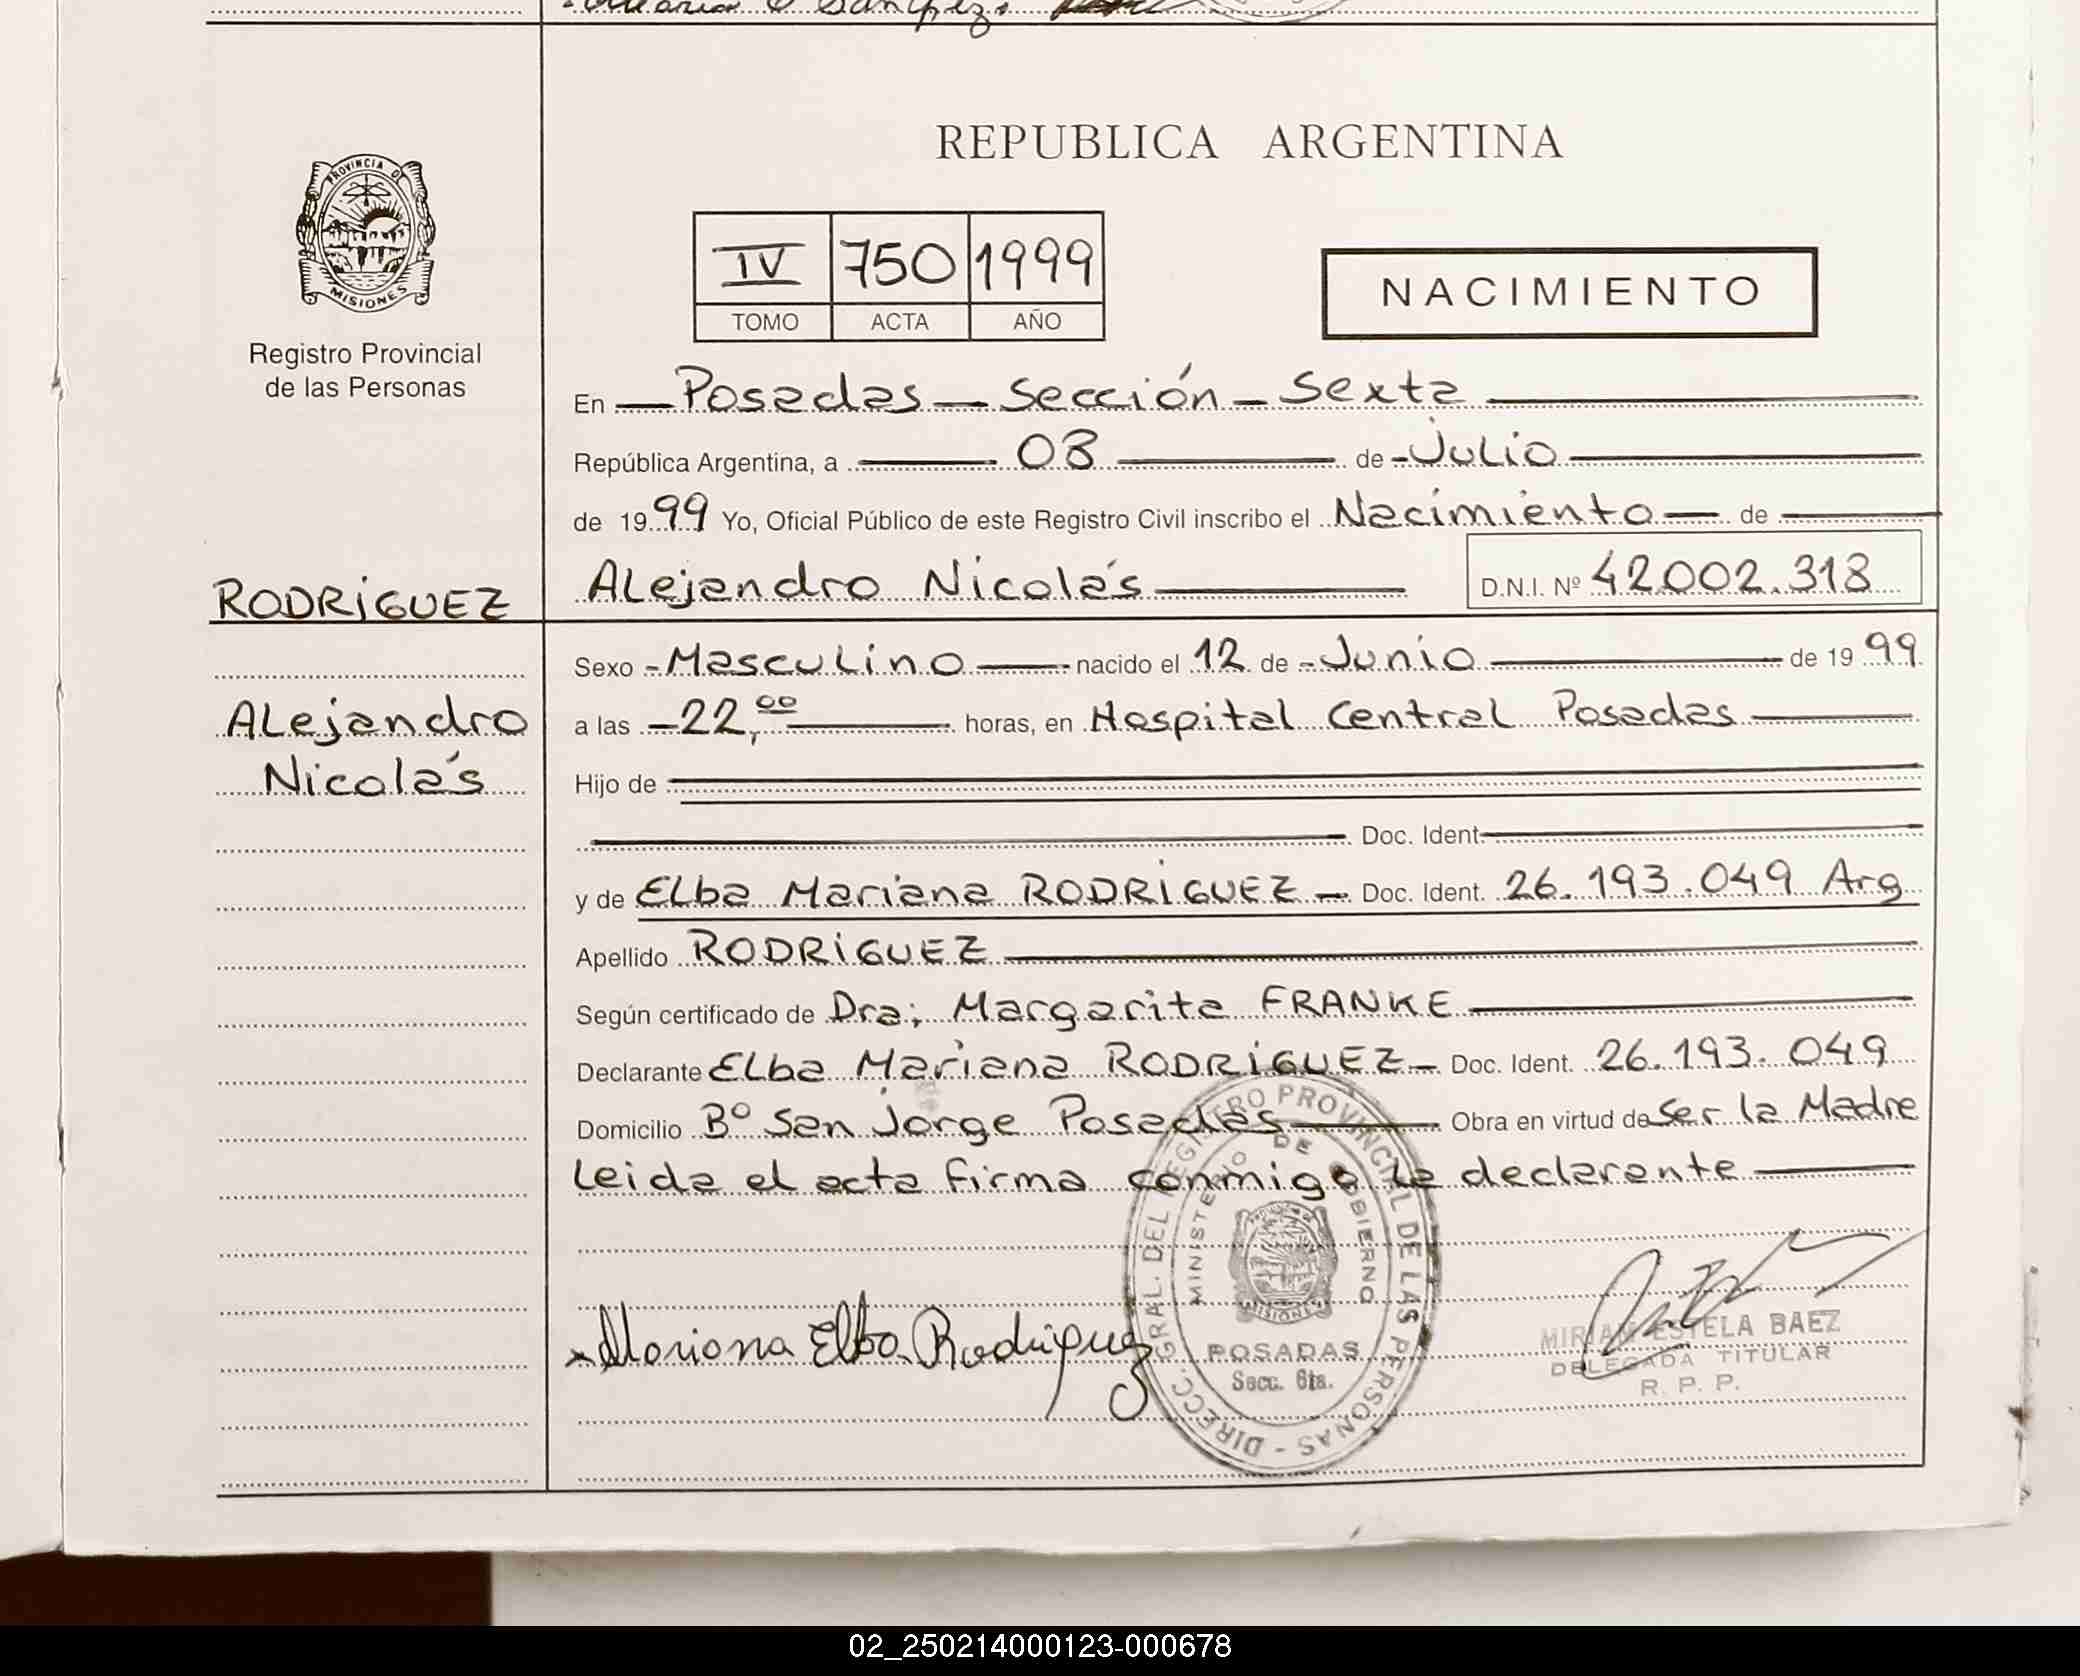 PROVINCIA DE
MISIONES
Registro Provincial
de las Personas
REPUBLICA ARGENTINA
IV 750 1999
TOMO ACTA AÑO
NACIMIENTO
En Posadas - Sección - Sexta
República Argentina, a 08 de Julio
de 1999 Yo, Oficial Público de este Registro Civil inscribo el Nacimiento de
RODRÍGUEZ Alejandro Nicolás D.N.I. Nº 42.002.318
Sexo - Masculino nacido el 12 de - Junio de 1999
Alejandro
Nicolás
a las - 22,00 horas, en Hospital Central Posadas
Hijo de
Doc. Ident.
y de Elba Mariana RODRÍGUEZ - Doc. Ident. 26.193.049 Arg
Apellido RODRÍGUEZ
Según certificado de Dra; Margarita FRANKE
Declarante Elba Mariana RODRÍGUEZ - Doc. Ident. 26.193.049
Domicilio Bº San Jorge Posadas Obra en virtud de Ser la Madre
Leida el acta firma conmigo la declarante
DIRECC. GRAL. DEL REGISTRO PROVINCIAL DE LAS PERSONAS -
MINISTERIO DE GOBIERNO
MISIONES
POSADAS
Secc. 6ta.
x Mariana Elba Rodriguez
MIRIAM ESTELA BAEZ
DELEGADA TITULAR
R. P. P.
02_250214000123-000678